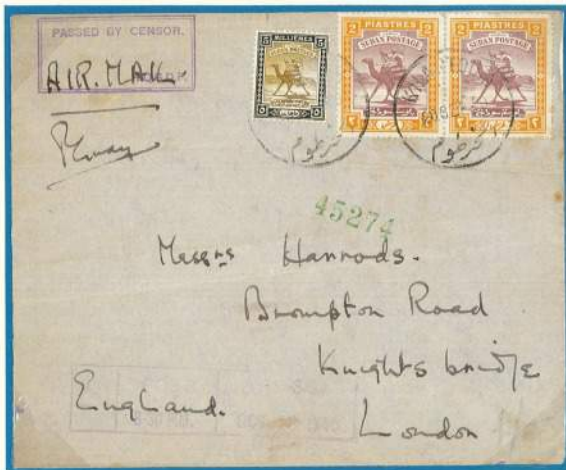 PASSED BY CENSOR.
AIR. MAIL.
MILLIEMES
5 5
SUDAN POSTAGE
5 ٥
PIASTRES
2 2
SUDAN POSTAGE
٢ ٢
PIASTRES
2 2
SUDAN POSTAGE
٢ ٢
خرطوم
خرطوم
45274
Messrs Harrods.
Brompton Road
Knightsbridge
England.
London